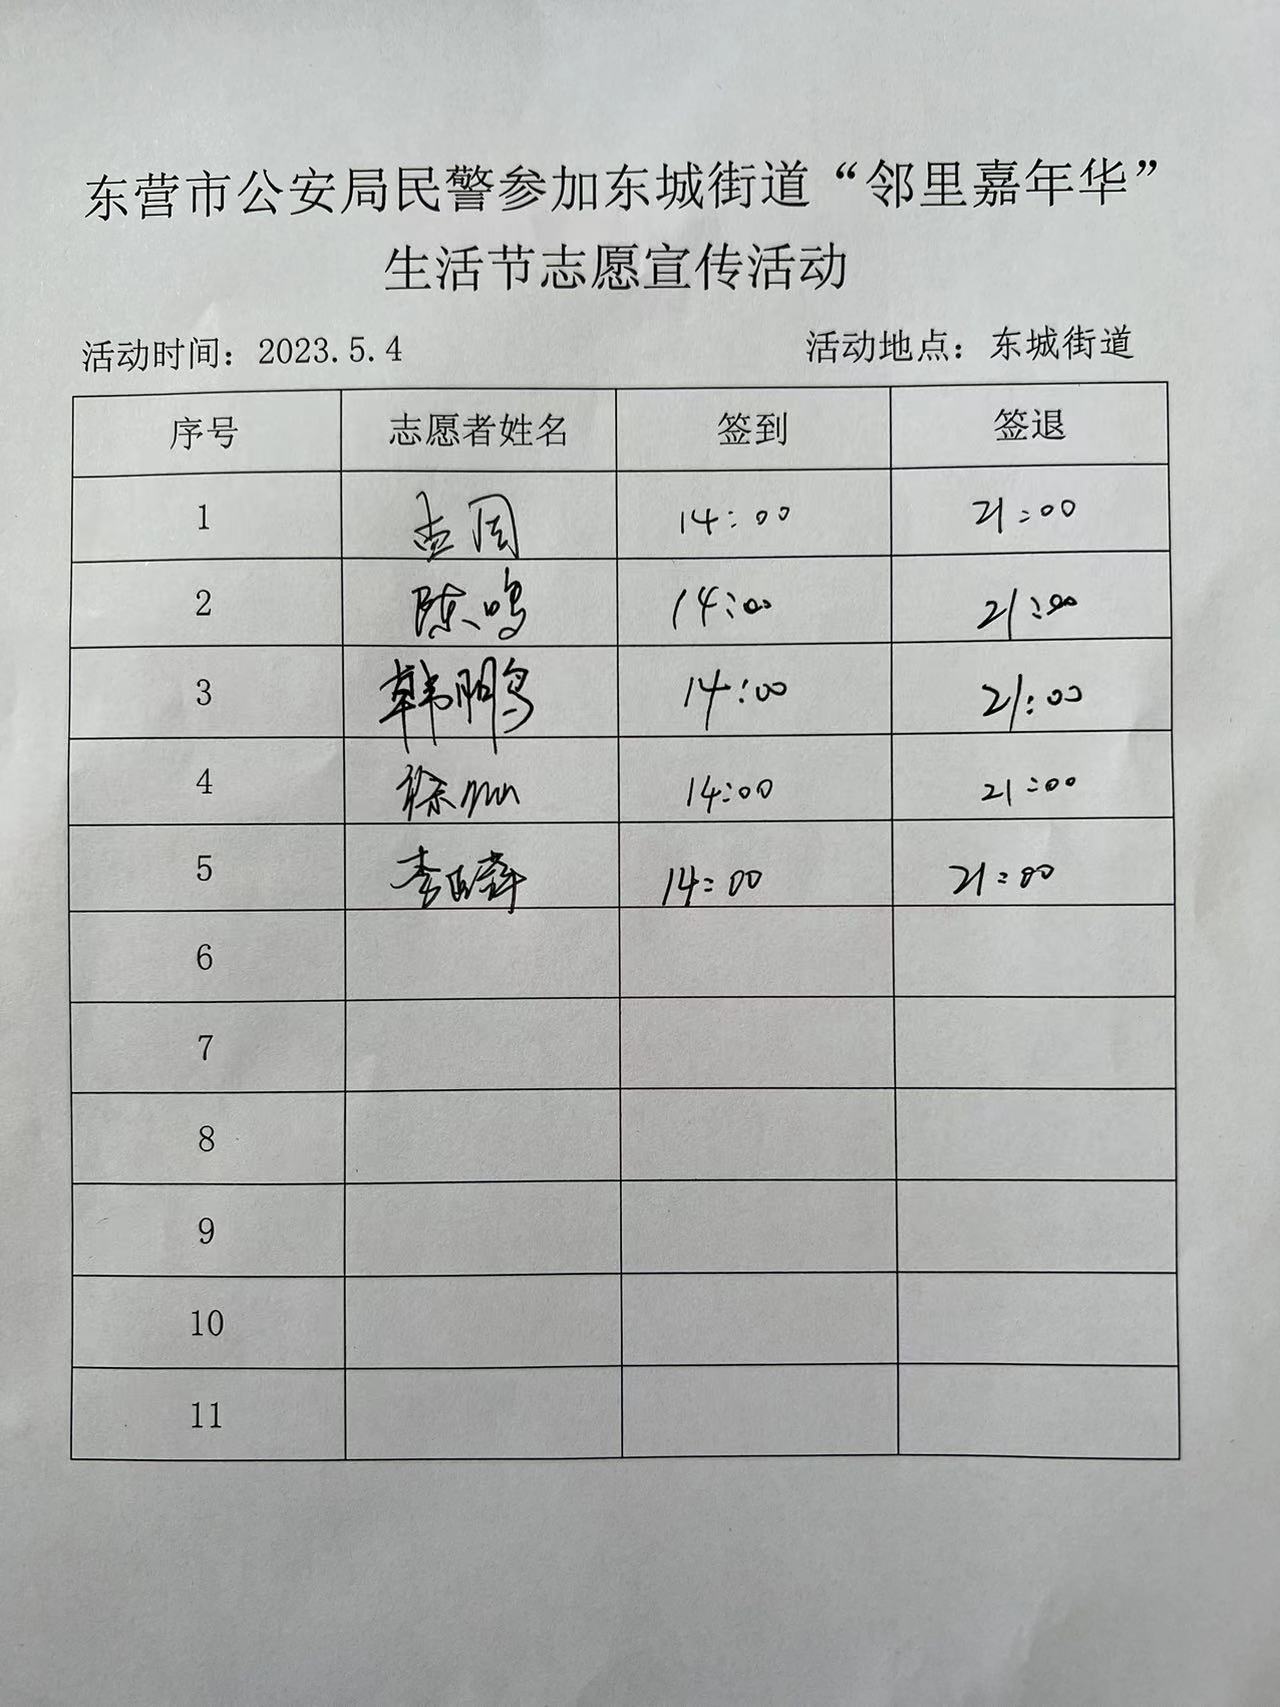 东营市公安局民警参加东城街道“邻里嘉年华”
生活节志愿宣传活动
活动时间：2023.5.4 活动地点：东城街道
序号 志愿者姓名 签到 签退
1 14:00 21:00
2 陈鸣 14:00 21:00
3 韩鹏 14:00 21:00
4 徐灿 14:00 21:00
5 李 14:00 21:00
6
7
8
9
10
11